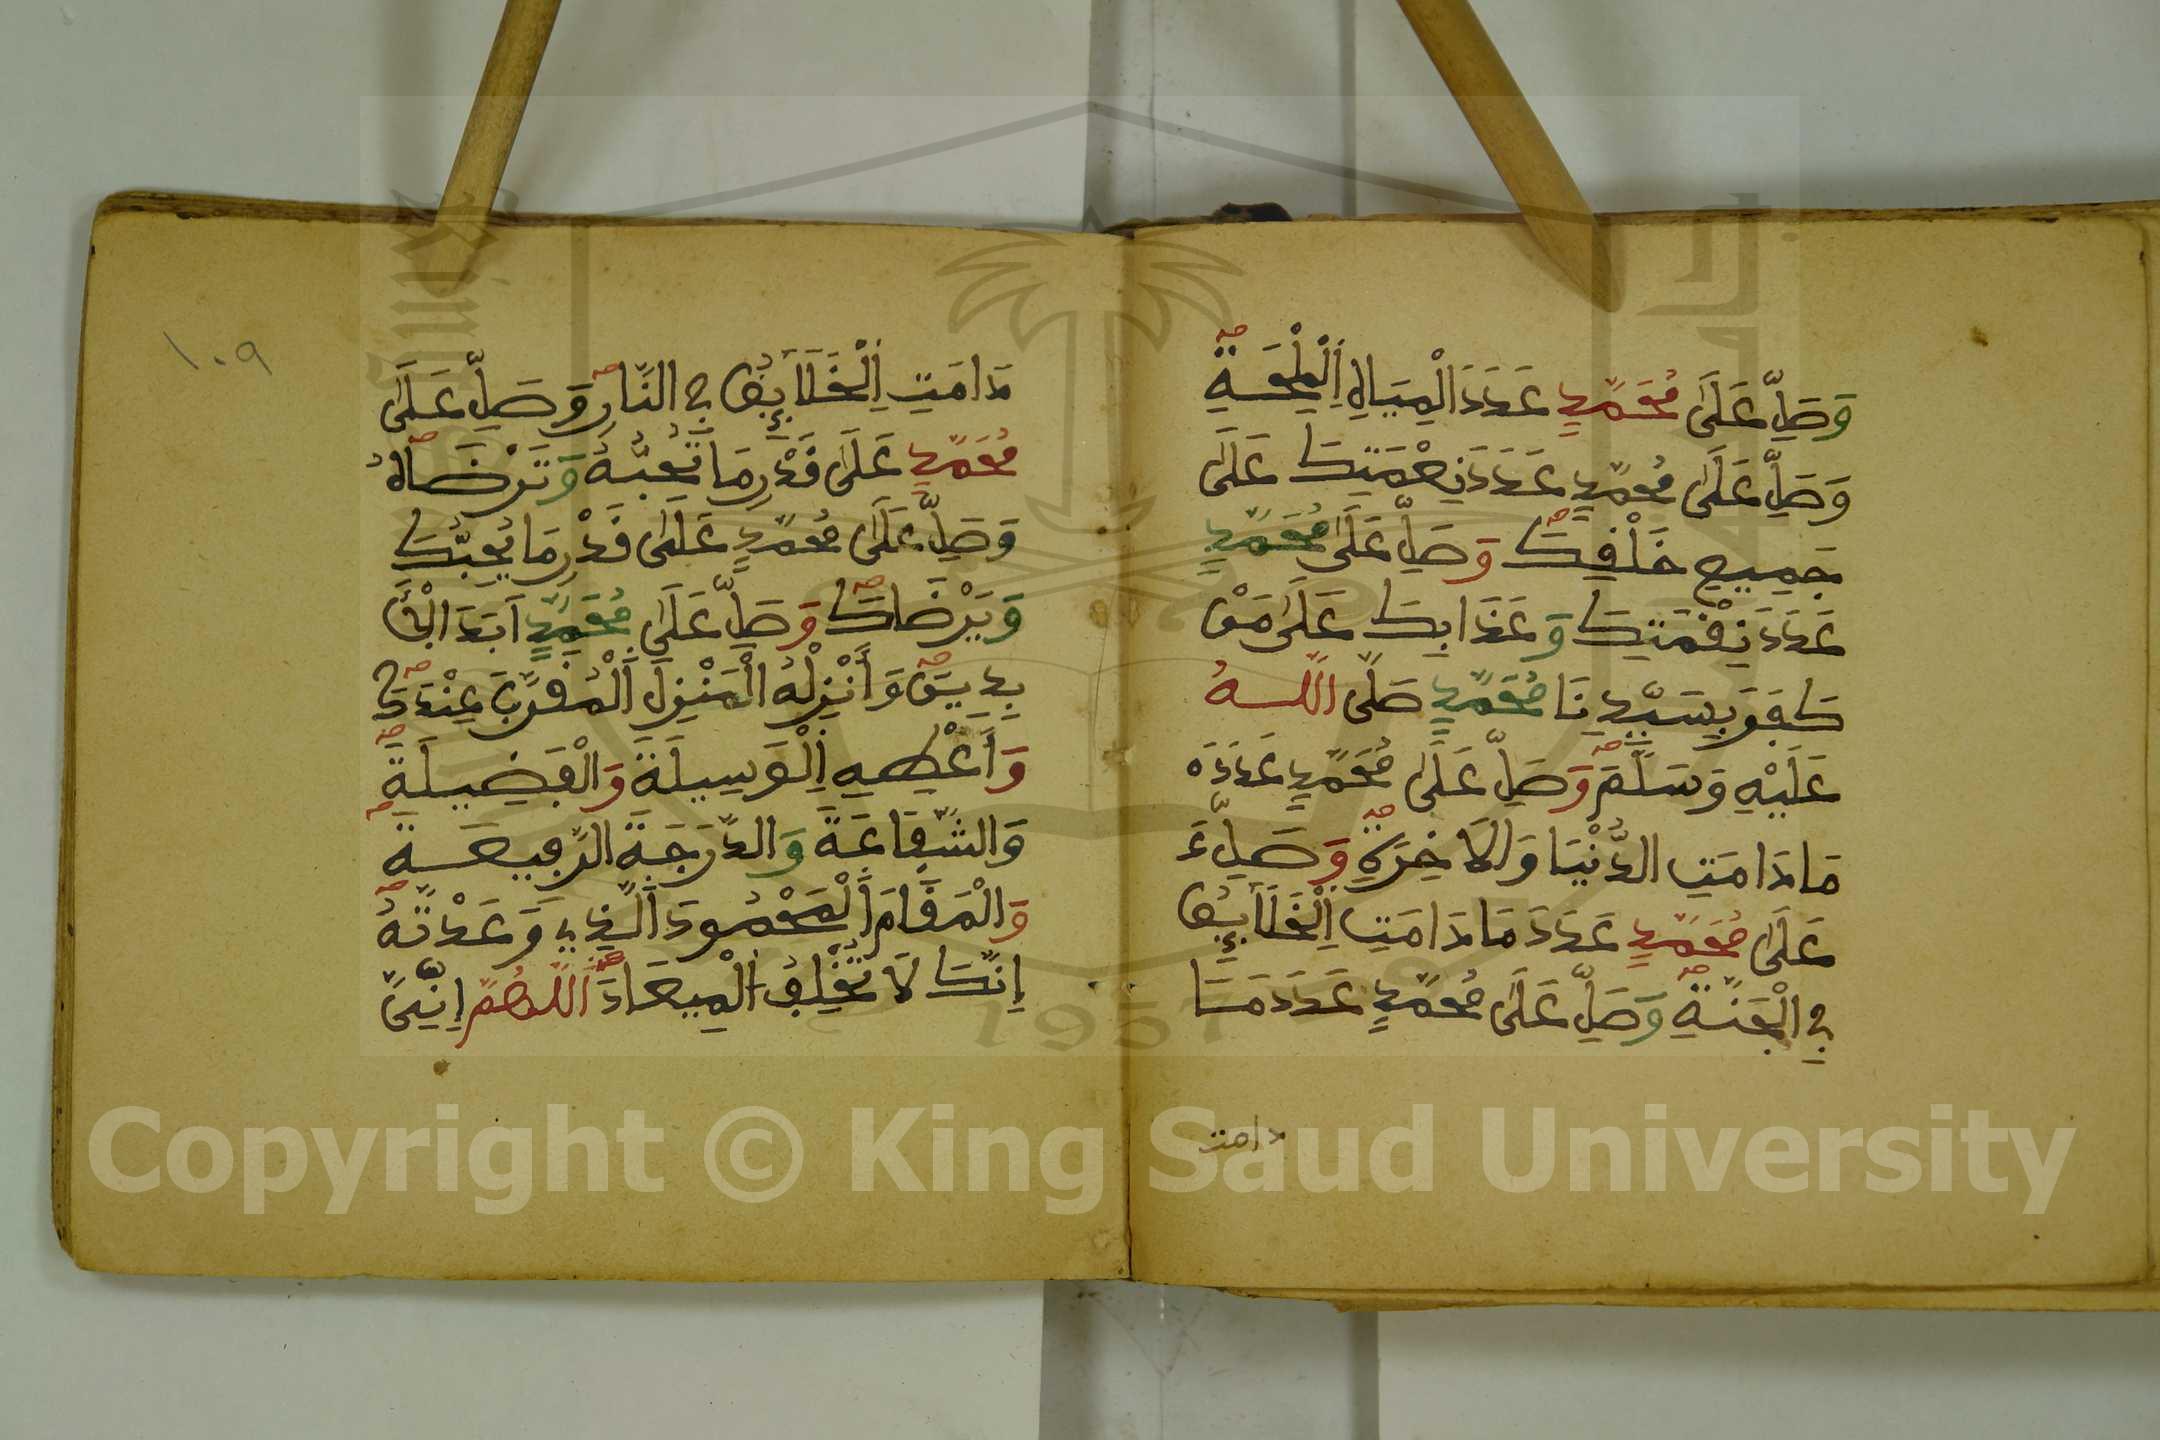 وَصَلِّ عَلَىٰ مُحَمَّدٍ عَدَدَ الْمِيَاهِ اِلْمِلْحَةِ
وَصَلِّ عَلَىٰ مُحَمَّدٍ عَدَدَ نِعْمَتِكَ عَلَىٰ
جَمِيعِ خَلْقِكَ وَصَلِّ عَلَىٰ مُحَمَّدٍ
عَدَدَ نِقْمَتِكَ وَعَذَابِكَ عَلَىٰ مَنْ
كَفَرَ بِسَيِّدِنَا مُحَمَّدٍ صَلَّى اللَّهُ
عَلَيْهِ وَسَلَّمَ وَصَلِّ عَلَىٰ مُحَمَّدٍ عَدَدَ
مَا دَامَتِ الدُّنْيَا وَالَاخِرَةِ وَصَلِّ
عَلَىٰ مُحَمَّدٍ عَدَدَ مَا دَامَتِ اِلْخَلَآيِٕقُ
فِي الْجَنَّةِ وَصَلِّ عَلَىٰ مُحَمَّدٍ عَدَدَ مَا
دامت
١٠٩
دَامَتِ اِلْخَلَآيِٕقُ فِي النَّارِ وَصَلِّ عَلَىٰ
مُحَمَّدٍ عَلَىٰ قَدْرِ مَا تُحِبُّهُ وَتَرْضَاهُ
وَصَلِّ عَلَىٰ مُحَمَّدٍ عَلَىٰ قَدْرِ مَا يُحِبُّكَ
وَيَرْضَاكَ وَصَلِّ عَلَىٰ مُحَمَّدٍ اَبَدَ الْأَ
بِدِينَ وَأَنْزِلْهُ الْمَنْزِلَ اَلْمُقَرَّبَ عِنْدَكَ
وَأَعْطِهِ اِلْوَسِيلَةَ وَالْفَضِيلَةَ
وَالشَّفَاعَةَ وَالدَّرَجَةَ الرَّفِيعَةَ
وَالْمَقَامَ اَلْمَحْمُودَ اَلَّذِي وَعَدْتَهُ
إِنَّكَ لَا تُخْلِفُ الْمِيعَادَ اَللَّهُمَّ إِنِّي
Copyright © King Saud University
1957